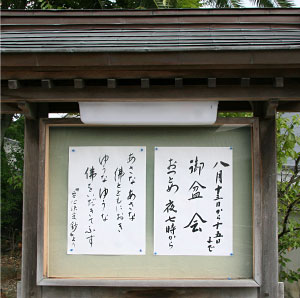 八月十三日から十五日まで
御盆会
おつとめ 夜 七時から
あさな あさな
佛とともにおき
ゆうな ゆうな
佛をいだきてふす
“安心決定鈔”より